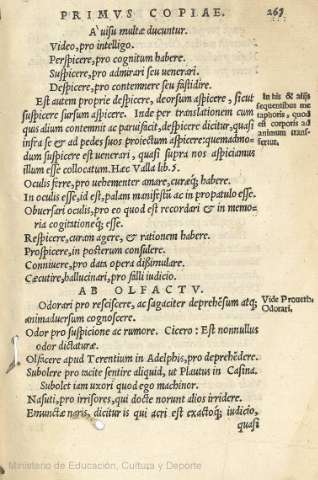 PRIMVS COPIAE.
265
A' uisu multæ ducuntur.
Video, pro intelligo.
Perspicere, pro cognitum habere.
Suspicere, pro admirari seu uenerari.
Despicere, pro contemnere seu fastidire.
Est autem proprie despicere, deorsum aspicere, sicut
suspicere sursum aspicere. Inde per translationem cum
quis alium contemnit ac paruifacit, despicere dicitur, quasi
infra se & ad pedes suos proiectum aspicere: quemadmo-
dum suspicere est uenerari, quasi supra nos aspiciamus
illum esse collocatum. Hæc Valla lib. 5.
In his & alijs
sequentibus me
taphoris, quod
est corporis ad
animum trans-
fertur.
Oculis ferre, pro uehementer amare, curæq; habere.
In oculis esse, id est, palam manifestũ ac in propatulo esse.
Obuersari oculis, pro eo quod est recordari & in memo-
ria cogitationeq; esse.
Respicere, curam agere, & rationem habere.
Prospicere, in posterum considere.
Conniuere, pro data opera dißimulare.
Cæcutire, hallucinari, pro falli iudicio.
AB OLFACTV.
Odorari pro resciscere, ac sagaciter deprehẽsum atq;
animaduersum cognoscere.
Vide Prouerb.
Odorari.
Odor pro suspicione ac rumore. Cicero: Est nonnullus
odor dictaturæ.
Olfacere apud Terentium in Adelphis, pro deprehẽdere.
Subolere pro tacite sentire aliquid, ut Plautus in Casina.
Subolet iam uxori quod ego machinor.
Nasuti, pro irrisores, qui docte norunt alios irridere.
Emunctæ naris, dicitur is qui acri est exactoq; iudicio,
quasi
Ministerio de Educación, Cultura y Deporte